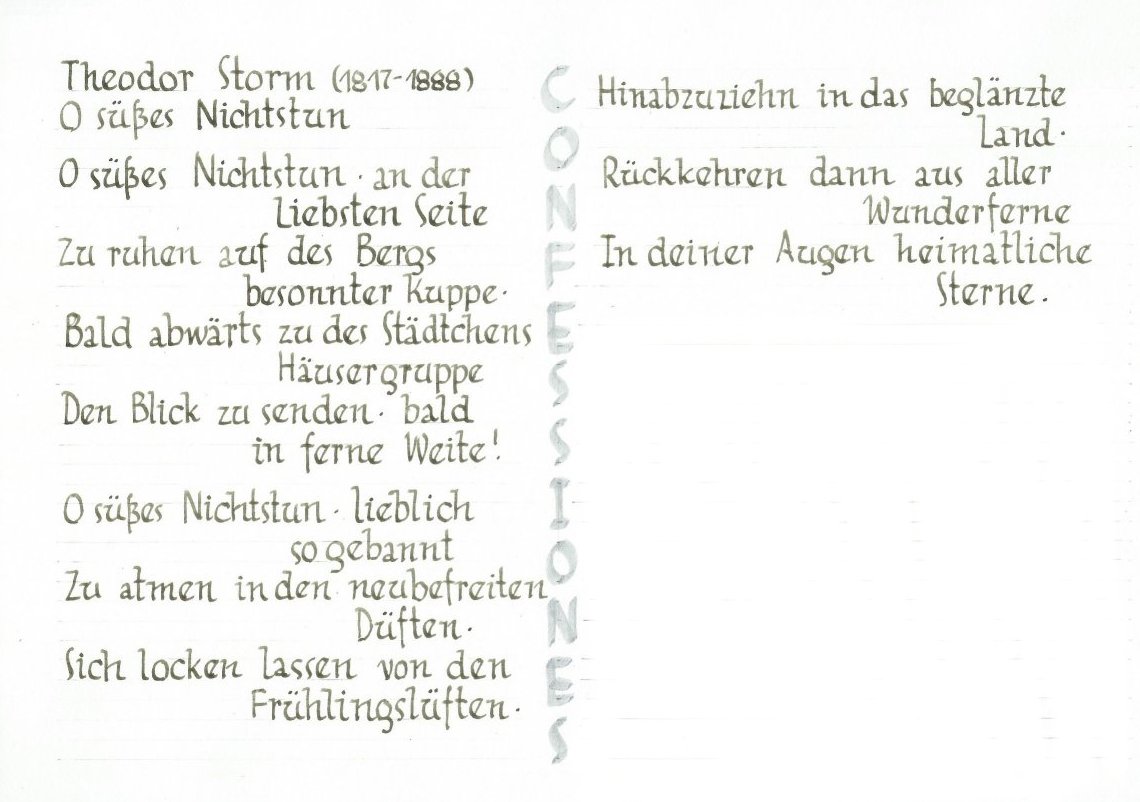 Theodor Storm (1817-1888)
O süßes Nichtstun
O süßes Nichtstun · an der
Liebsten Seite
Zu ruhen auf des Bergs
besonnter Kuppe ·
Bald abwärts zu des Städtchens
Häusergruppe
Den Blick zu senden · bald
in ferne Weite!
O süßes Nichtstun · lieblich
so gebannt
Zu atmen in den neubefreiten
Düften ·
Sich locken lassen von den
Frühlingslüften ·
CONFESSIONES
Hinabzuziehn in das beglänzte
Land ·
Rückkehren dann aus aller
Wunderferne
In deiner Augen heimatliche
Sterne .